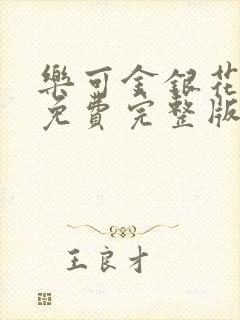 樂可金銀花
免費完整版
王良才